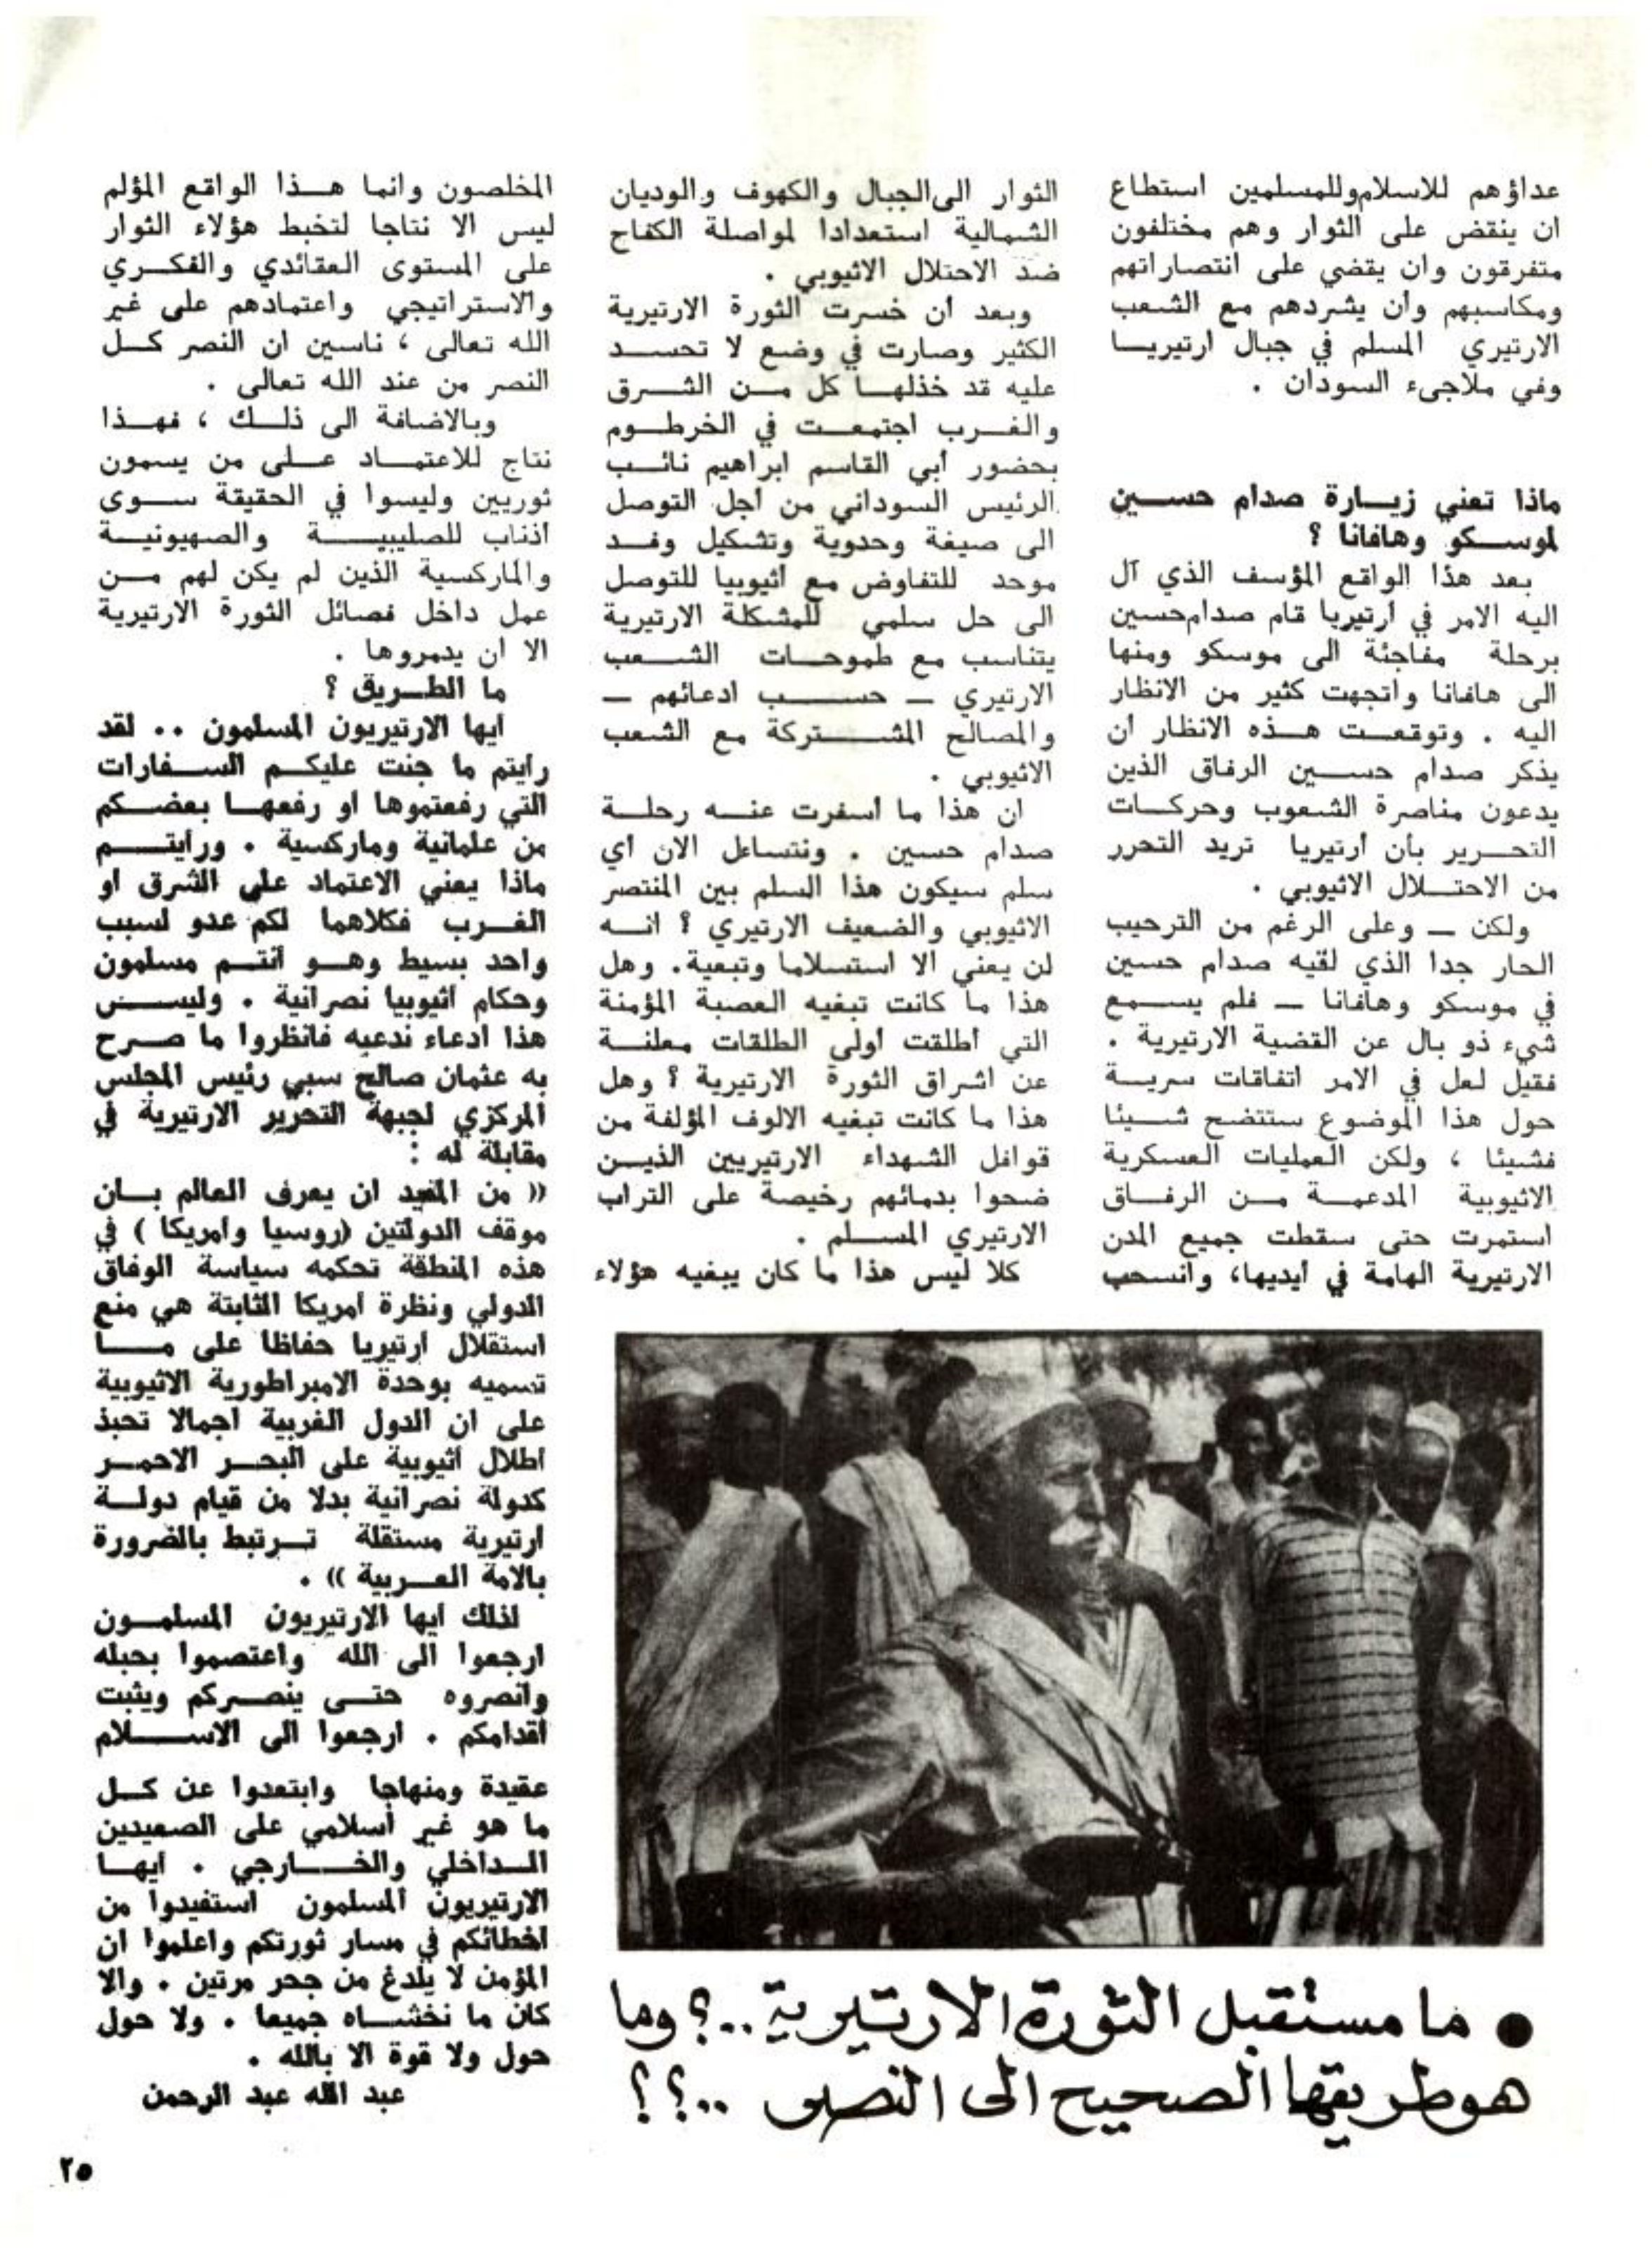 عداؤهم للاسلام وللمسلمين استطاع
ان ينقض على الثوار وهم مختلفون
متفرقون وان يقضي على انتصاراتهم
ومكاسبهم وأن يشردهم مع الشعب
الارتيري المسلم في جبال ارتيريا
وفي ملاجىء السودان .
ماذا تعني زيارة صدام حسين
لموسكو وهافانا ؟
بعد هذا الواقع المؤسف الذي آل
اليه الامر في ارتيريا قام صدام حسين
برحلة مفاجئة الى موسكو ومنها
الى هافانا واتجهت كثير من الانظار
اليه . وتوقعت هذه الانظار أن
يذكر صدام حسين الرفاق الذين
يدعون مناصرة الشعوب وحركات
التحرير بأن ارتيريا تريد التحرر
من الاحتلال الاثيوبي .
ولكن — وعلى الرغم من الترحيب
الحار جدا الذي لقيه صدام حسين
في موسكو وهافانا — فلم يسمع
شيء ذو بال عن القضية الارتيرية .
فقيل لعل في الامر اتفاقات سرية
حول هذا الموضوع ستتضح شيئا
فشيئا ، ولكن العمليات العسكرية
الاثيوبية المدعمة من الرفاق
استمرت حتى سقطت جميع المدن
الارتيرية الهامة في أيديها، وانسحب
الثوار الى الجبال والكهوف والوديان
الشمالية استعدادا لمواصلة الكفاح
ضد الاحتلال الاثيوبي .
وبعد أن خسرت الثورة الارتيرية
الكثير وصارت في وضع لا تحسد
عليه قد خذلها كل من الشرق
والغرب اجتمعت في الخرطوم
بحضور أبي القاسم ابراهيم نائب
الرئيس السوداني من أجل التوصل
الى صيغة وحدوية وتشكيل وفد
موحد للتفاوض مع أثيوبيا للتوصل
الى حل سلمي للمشكلة الارتيرية
يتناسب مع طموحات الشعب
الارتيري — حسب ادعائهم —
والمصالح المشتركة مع الشعب
الاثيوبي .
ان هذا ما أسفرت عنه رحلة
صدام حسين . ونتساءل الآن أي
سلم سيكون هذا السلم بين المنتصر
الاثيوبي والضعيف الارتيري ؟ انه
لن يعني الا استسلاما وتبعية . وهل
هذا ما كانت تبغيه العصبة المؤمنة
التي أطلقت أولى الطلقات معلنة
عن اشراق الثورة الارتيرية ؟ وهل
هذا ما كانت تبغيه الالوف المؤلفة من
قوافل الشهداء الارتيريين الذين
ضحوا بدمائهم رخيصة على التراب
الارتيري المسلم .
كلا ليس هذا ما كان يبغيه هؤلاء
المخلصون وانما هذا الواقع المؤلم
ليس الا نتاجا لتخبط هؤلاء الثوار
على المستوى العقائدي والفكري
والاستراتيجي واعتمادهم على غير
الله تعالى ، ناسين ان النصر كل
النصر من عند الله تعالى .
وبالاضافة الى ذلك ، فهذا
نتاج للاعتماد على من يسمون
ثوريين وليسوا في الحقيقة سوى
أذناب للصليبية والصهيونية
والماركسية الذين لم يكن لهم من
عمل داخل فصائل الثورة الارتيرية
الا ان يدمروها .
ما الطريق ؟
ايها الارتيريون المسلمون .. لقد
رايتم ما جنت عليكم السفارات
التي رفعتموها او رفعها بعضكم
من علمانية وماركسية . ورايتم
ماذا يعني الاعتماد على الشرق او
الغرب فكلاهما لكم عدو لسبب
واحد بسيط وهو أنتم مسلمون
وحكام اثيوبيا نصرانية . وليس
هذا ادعاء ندعيه فانظروا ما صرح
به عثمان صالح سبي رئيس المجلس
المركزي لجبهة التحرير الارتيرية في
مقابلة له :
« من المفيد ان يعرف العالم بان
موقف الدولتين (روسيا وامريكا ) في
هذه المنطقة تحكمه سياسة الوفاق
الدولي ونظرة امريكا الثابتة هي منع
استقلال ارتيريا حفاظا على ما
تسميه بوحدة الامبراطورية الاثيوبية
على ان الدول الغربية اجمالا تحبذ
اطلال اثيوبية على البحر الاحمر
كدولة نصرانية بدلا من قيام دولة
ارتيرية مستقلة ترتبط بالضرورة
بالامة العربية » .
لذلك ايها الارتيريون المسلمون
ارجعوا الى الله واعتصموا بحبله
وانصروه حتى ينصركم ويثبت
أقدامكم . ارجعوا الى الاسلام
عقيدة ومنهاجا وابتعدوا عن كل
ما هو غير اسلامي على الصعيدين
الداخلي والخارجي . ايها
الارتيريون المسلمون استفيدوا من
اخطائكم في مسار ثورتكم واعلموا ان
المؤمن لا يلدغ من جحر مرتين . والا
كان ما نخشاه جميعا . ولا حول
حول ولا قوة الا بالله .
عبد الله عبد الرحمن
• ما مستقبل الثورة الارتيرية..؟ وما
هو طريقها الصحيح الى النصر ..؟؟
٢٥